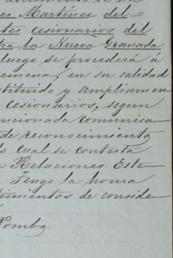 es Martínez del
tes cesionarios del
tra la Nueva Granada
luego se procederá á
emena, en su calidad
stituido y ampliamen
cesionarios, segun
ncionada comunica
de reconocimiento
lo cual se contesta
e Relaciones Este
Tengo la honra
timientos de conside
Pombo